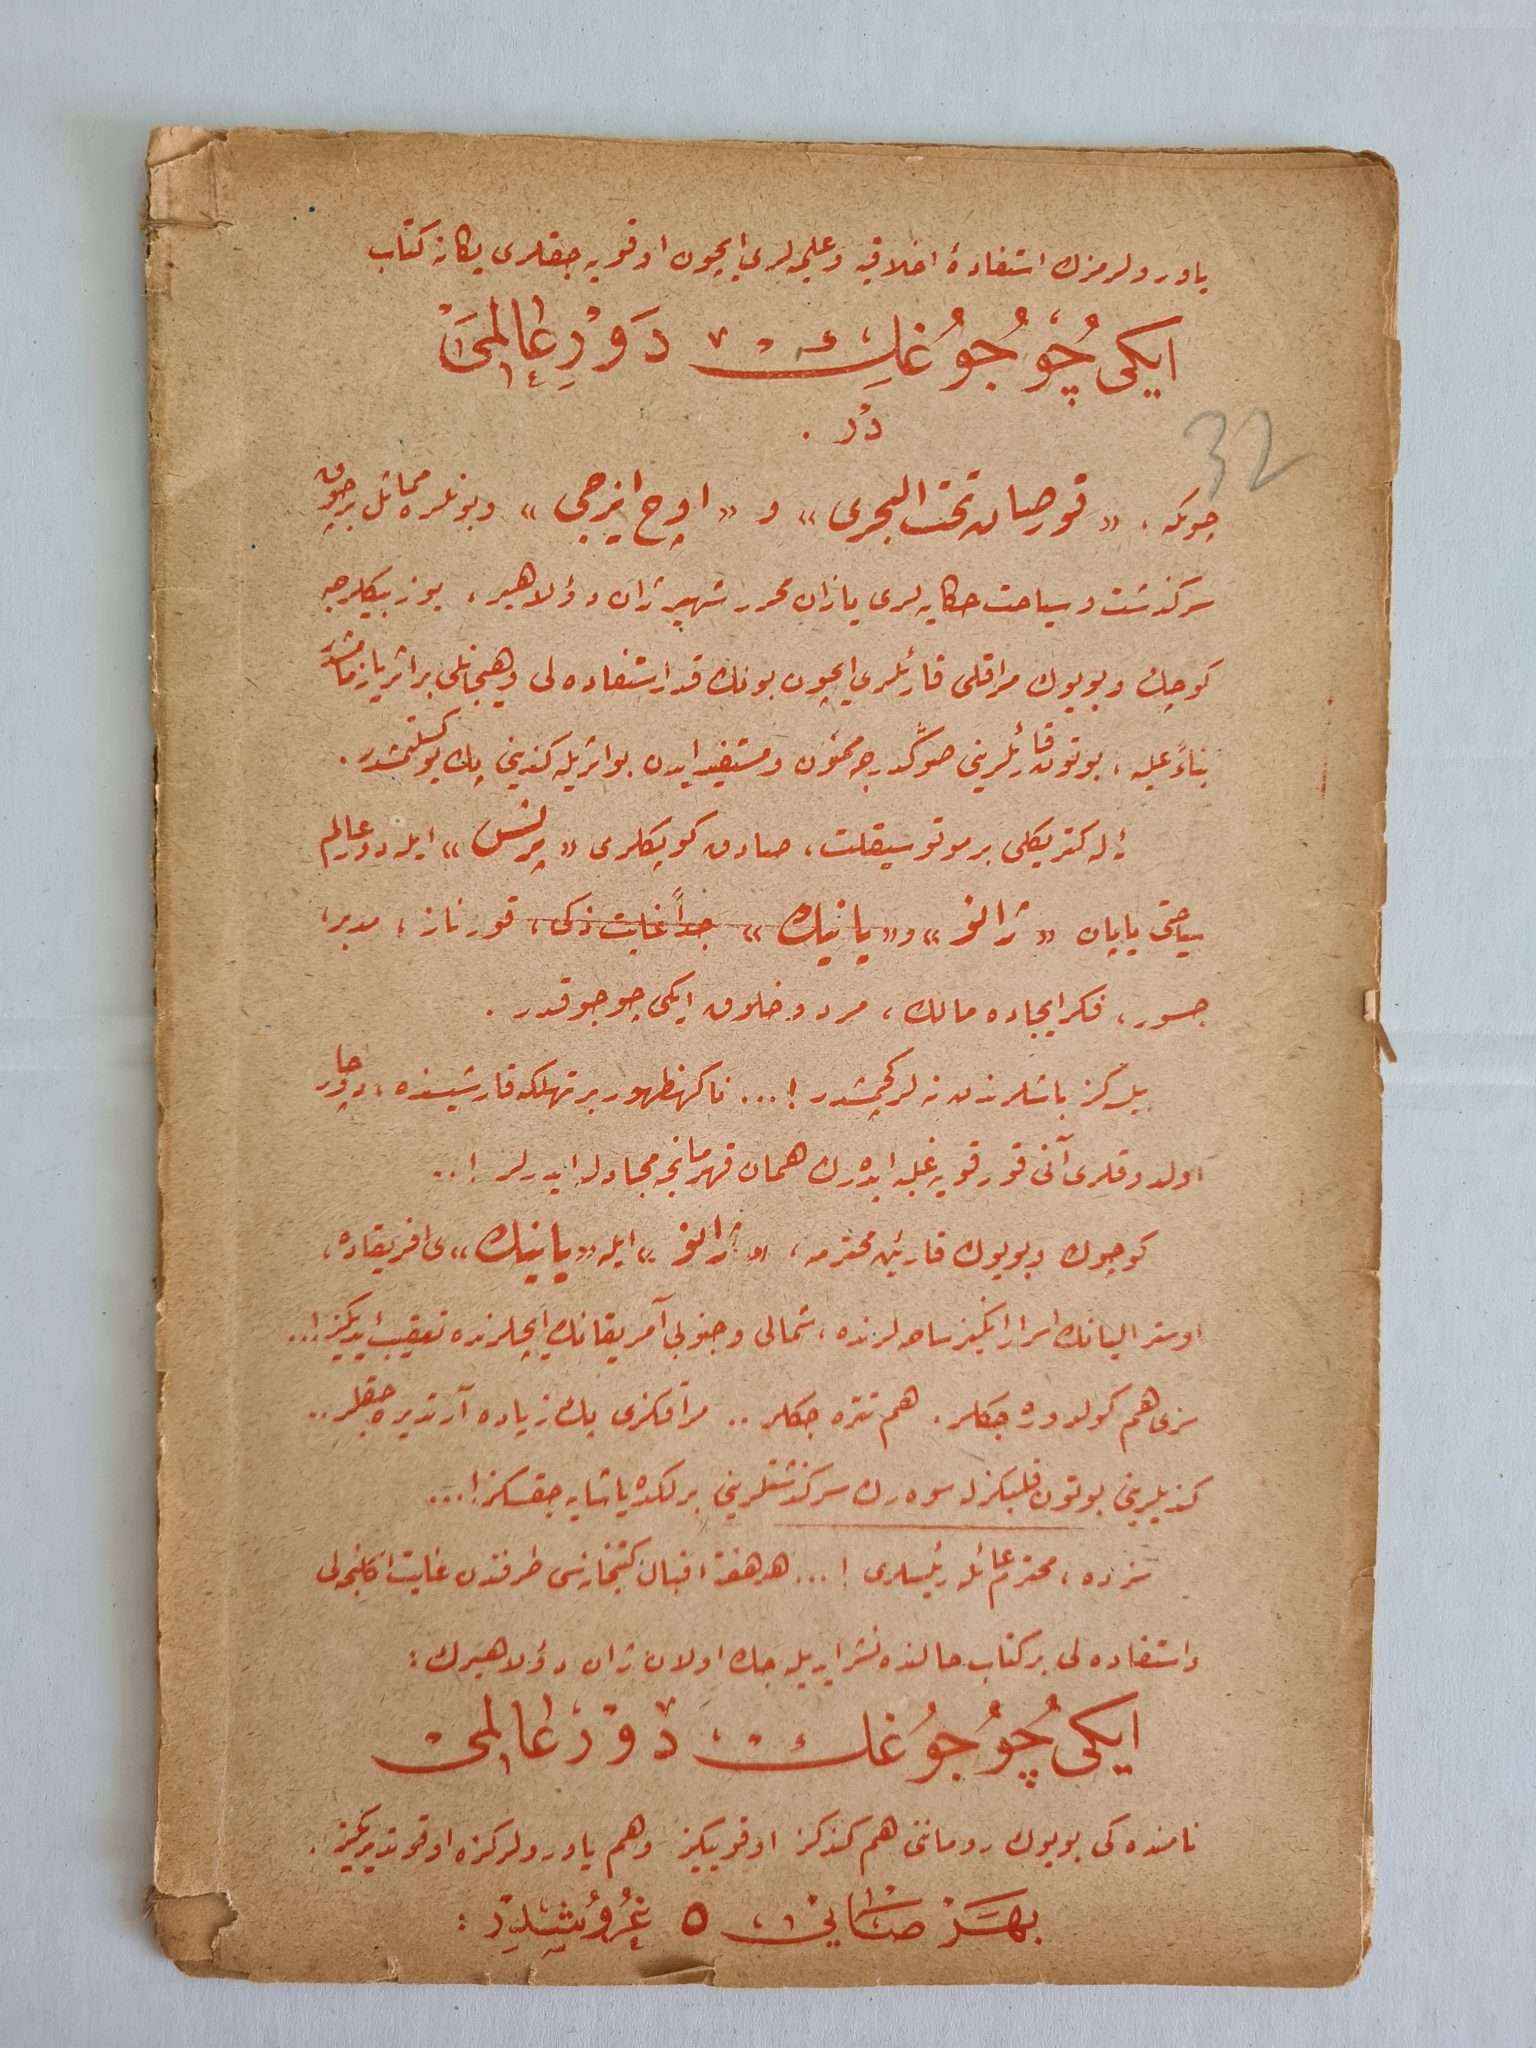 یاورولرمزك استفادهٔ اخلاقیه وعلمیه‌لری ایچون اوقویه‌جقلری یكانه كتاب
ایكی چوجوغك دور عالمی
در .
32
چونكه ، «قورصان تحت البحری» و «اوچ ایزجی» وبونلره مماثل برچوق
سركذشت وسیاحت حكایه‌لری یازان محرر شهیر ژان دؤلاهیر ، یوز بیكلرجه
كوچك وبویوك مراقلی قارئلری ایچون بونك قدر استفاده‌لی وهیجانلی بر اثر یازمامشدر
بناءً علیه ، بوتون قارئلرینی صوك درجه ممنون ومستفید ایدن بو اثریله كندینی پك یوكسلتمشدر .
ئه‌له‌كتریكلی بر موتوسیقلت ، صادق كوپكلری «پرنس» ایله دور عالم
سیاحتی یاپان «ژانو» و «یانیك» جداً غایت ذكی ، قورناز ، مدبر ،
جسور ، فكر ایجاده مالك ، مرد وخلوق ایكی چوجوقدر .
بیلسه‌كز باشلرندن نه‌لر كچمشدر !... ناكهظهور بر تهلكه قارشیسنده ، دوچار
اولدوقلری آنی قورقویه غلبه ایده‌رك همان قهرمانجه مجادله ایدرلر !..
كوچوك وبویوك قارئین محترمه ، «ژانو» ایله «یانیك» ی افریقاده ،
اوسترالیانك اسرارانكیز ساحه‌لرنده ، شمالی وجنوبی آمریقانك ایچلرنده تعقیب ایدیكز !..
سزی هم كولدوره‌جكلر . هم تتره‌ته‌جكلر .. مراقكزی پك زیاده آرتدیره‌جقلر ..
كندیلرینی بوتون قلبكزله سوه‌رك سركذشتلرینی برلكده یاشایه‌جقسكز !...
سزده ، محترم عائله رئیسلری !... هر هفته اقبال كتبخانه‌سی طرفندن غایت اكلنجه‌لی
واستفاده‌لی بر كتاب حالنده نشر ایدیله‌جك اولان ژان دؤلاهیرك :
ایكی چوجوغك دور عالمی
نامنده‌كی بویوك رومانی هم كندكز اوقویكز وهم یاورولركزه اوقوتدیریكز .
بهر صاییسی ۵ غروشدر :